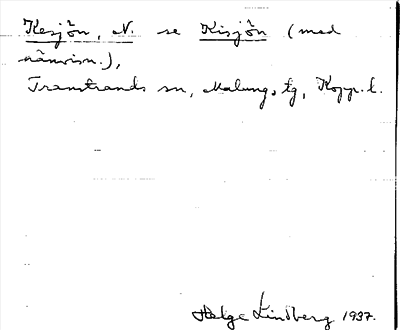 Kesjön, N. se Kisjön (med
hänvisn.),
Transtrands sn, Malungs tg, Kopp. l.
Helge Lindberg 1937.